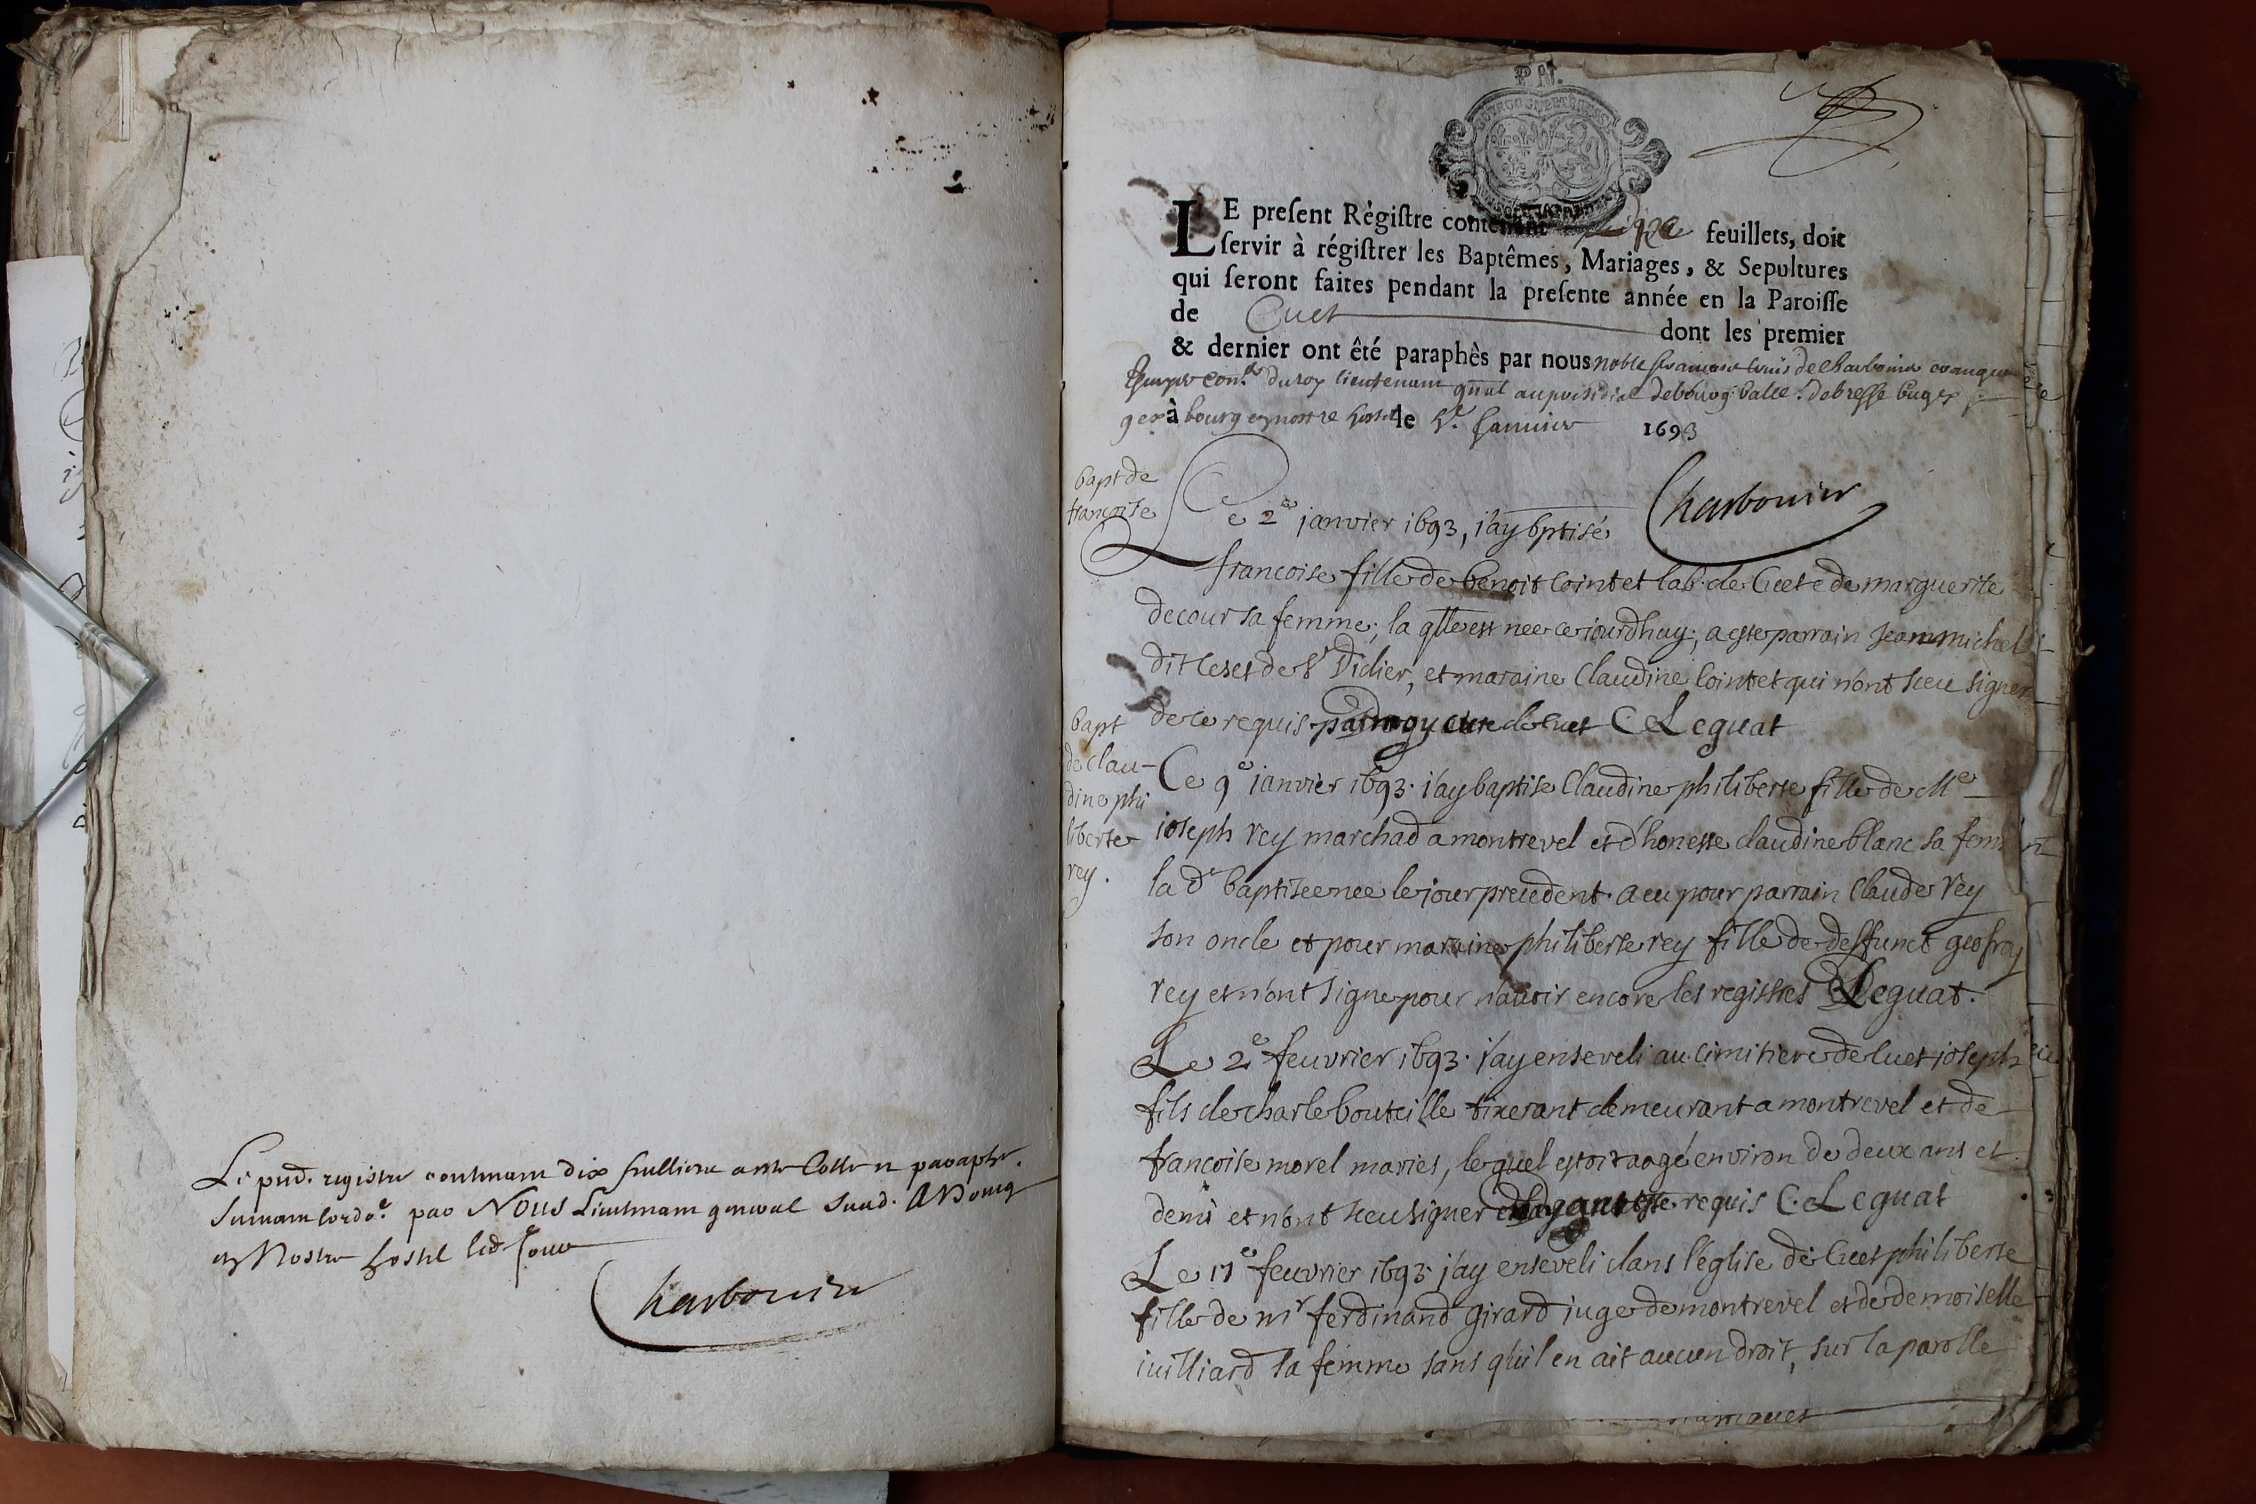 Le pnt. registre contenant dix feuillets a este Cotté et paraphé
suivant lord.e par Nous Lieutenant general susd. A Bourg
en Nostre hostel led jour
Charbonier
LE present Régistre contenant feuillets, doit
servir à régistrer les Baptêmes, Mariages, & Sepultures
qui seront faites pendant la presente année en la Paroisse
de Cuet dont les premier
& dernier ont êté paraphès par nous noble francois louis de Charbonier
con.er du roy lieutenant gnal au presidial de bourg balle. de bresse bugey
gex à bourg en nostre hostel le Janvier 1693
Charbonier
bapt de
francoise
Ce 2e janvier 1693, j'ay bptisé
francoise fille de benoit Cointet lab. de Cuet e de marguerite
decour sa femme, la qlle est nee ce jourdhuy, a este parrain Jean michel
dit de St Didier, et maraine Claudine Cointet qui n'ont sceu signer
de ce requis par moy curé de cuet C. Leguat
bapt
de Clau-
dine phi
liberte
rey.
Ce 9e janvier 1693. j'ay baptise Claudine philiberte fille de Me
joseph rey marchad a montrevel et d'honeste claudine blanc sa femme
la de baptisee nee le jour precedent. a eu pour parrain Claude rey
son oncle et pour maraine philiberte rey fille de deffunct geofroy
rey et n'ont signe pour n'avoir encore les registres C Leguat.
Le 2e feuvrier 1693. j'ay enseveli au cimitiere de Cuet joseph
fils de charle bouteille tixerant demeurant a montrevel et de
francoise morel maries, lequel estoit aagé environ de deux ans et
demi et n'ont sceu signer requis C. Leguat
Le 11e feuvrier 1693. j'ay enseveli dans l'eglise de Cuet philiberte
fille de mr ferdinand Girard juge de montrevel et de demoiselle
juilliard sa femme sans qu'il en ait aucun droit, sur la parolle